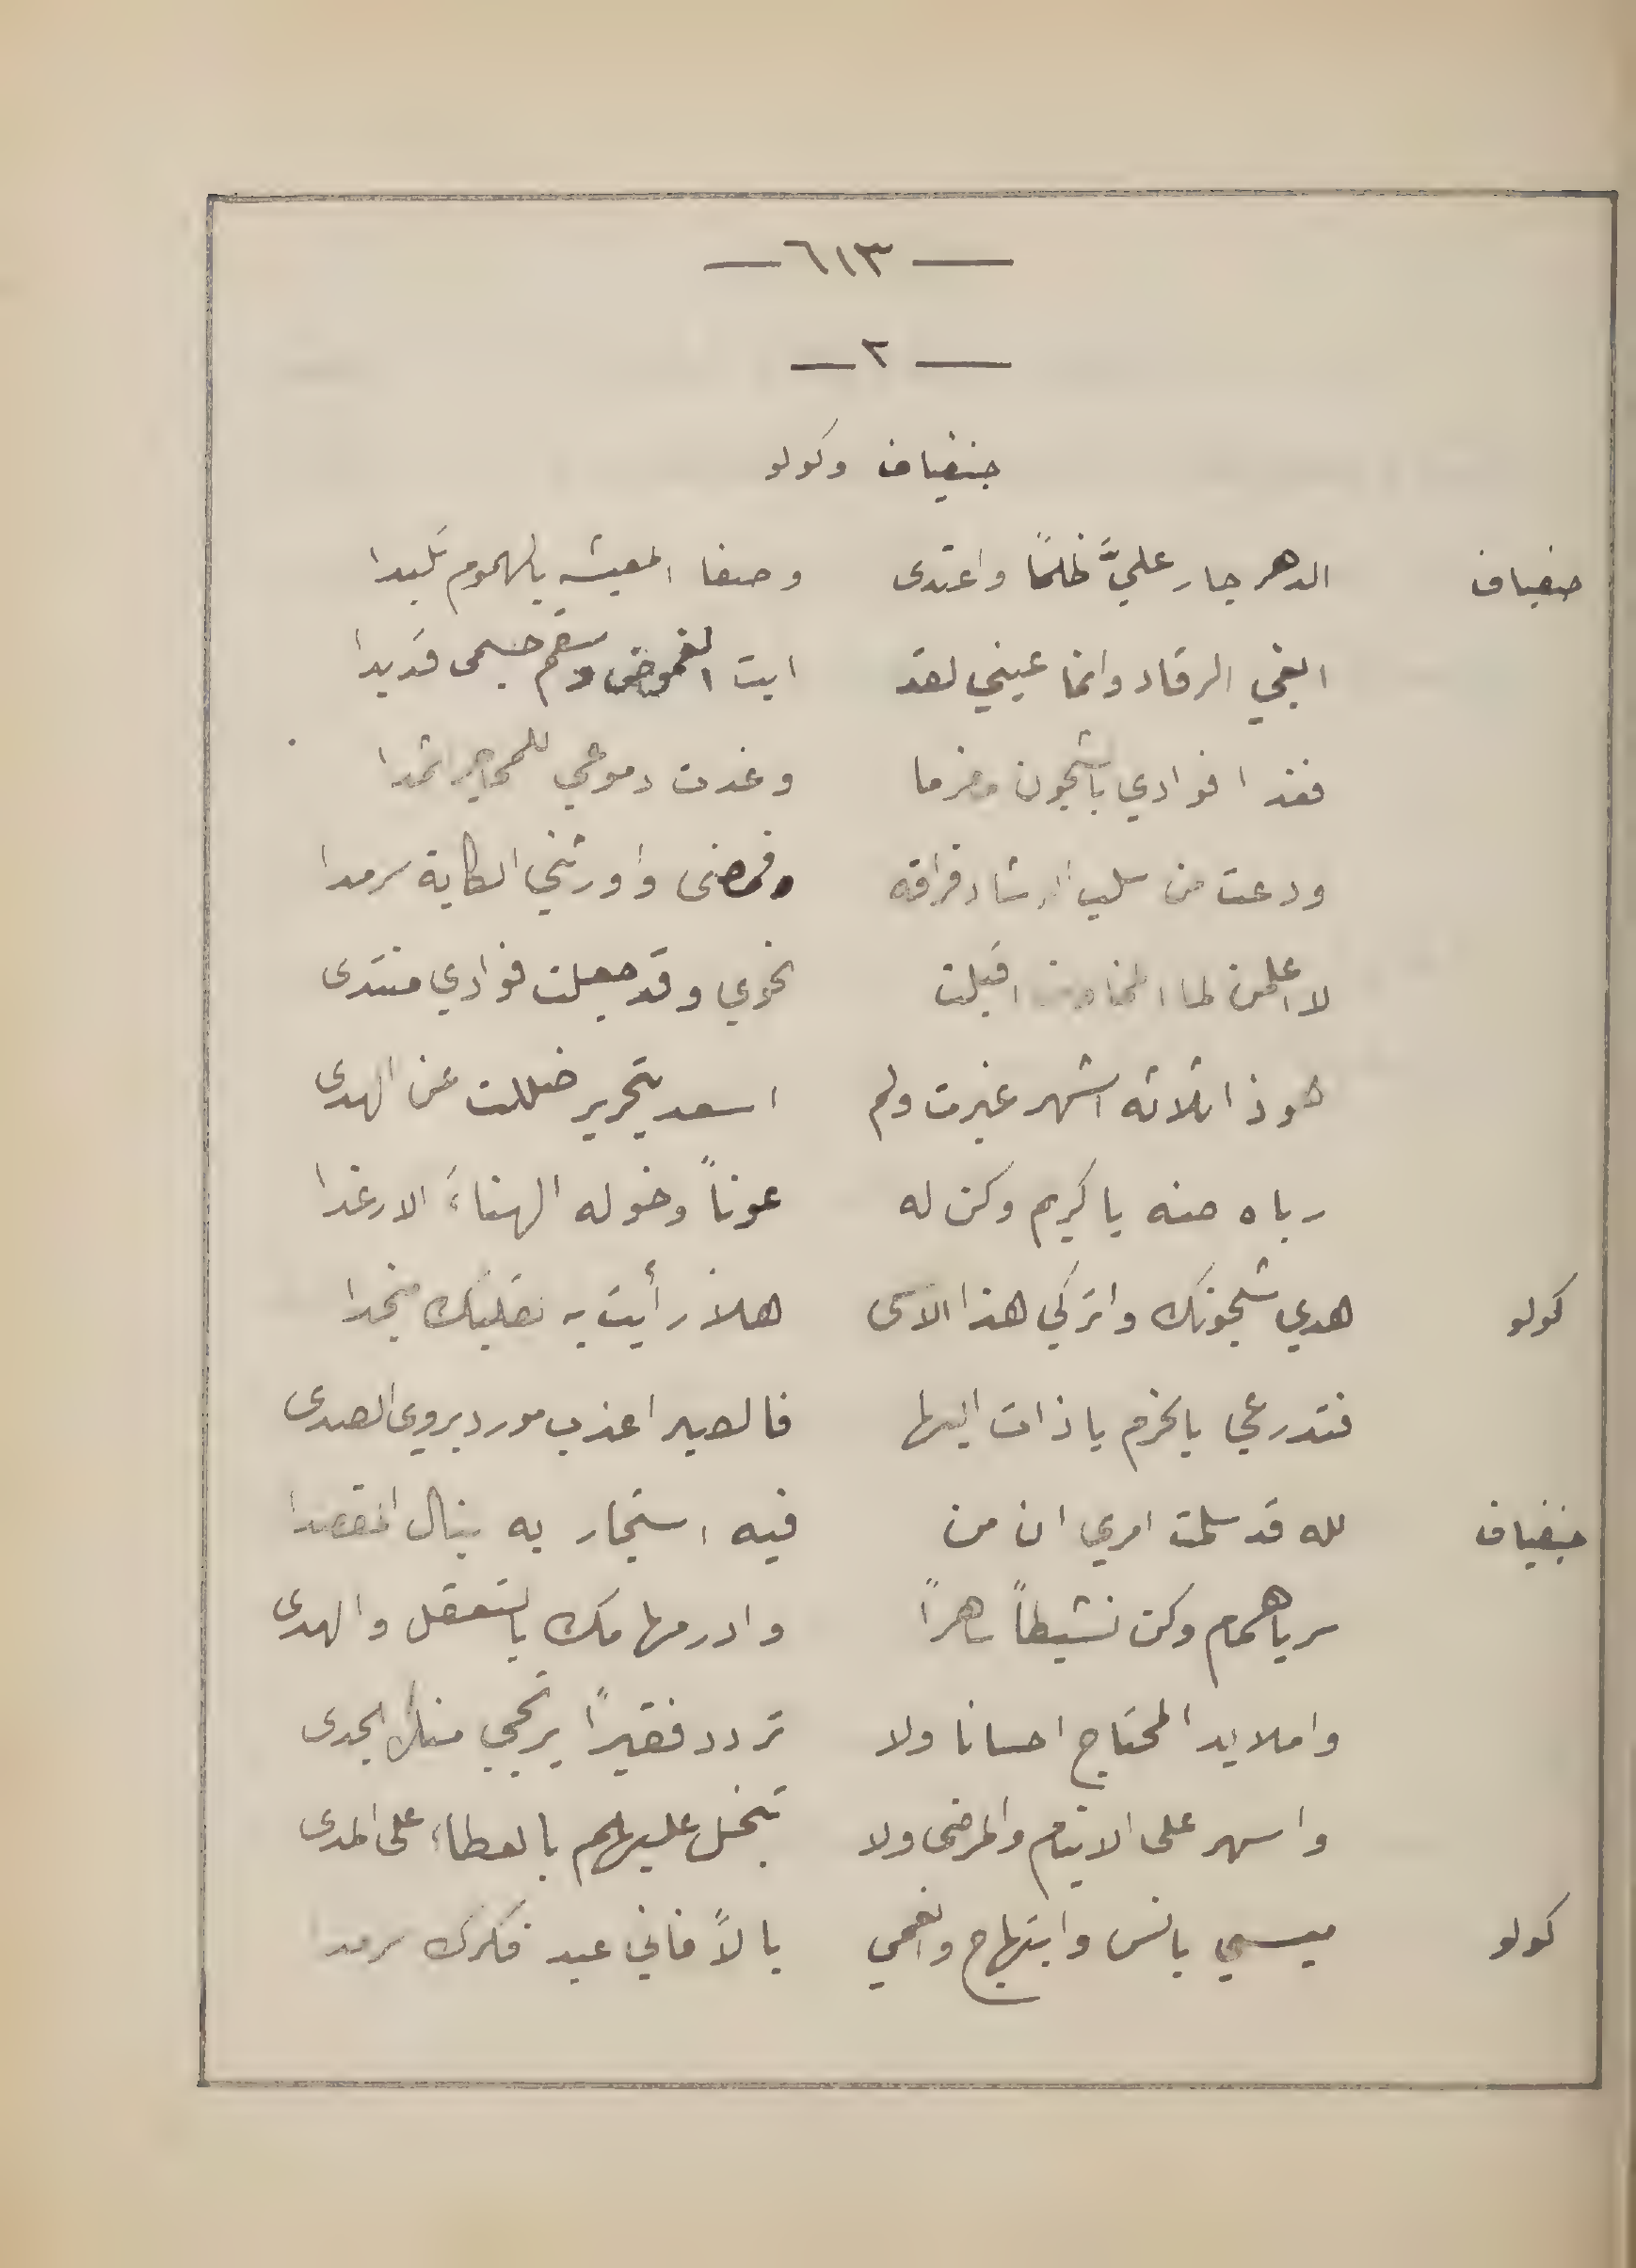 — ٦١٣ —
— ٢ —
جنفياف وكولو
جنفياف الدهر جار عليَّ ظلمًا واعتدى وصفا المعيشه بالهموم تلبدا
ابغي الرقاد وانما عيني لقد ابت الغموض وسقم جسمي قد بدا
فغدا فوادي بالشجون مضرما وغدت دموعي للمحاجر اثمدا
ودعت من سلب الرشاد فراقه فمضى واورثني الكابة سرمدا
لا اعلمن لما اقبلت نحوي وقد جعلت فوادي منتدى
هوذا ثلاثه اشهر غبرت ولم اسعد بتحرير ضللت عن الهدى
رباه صنه يا كريم وكن له عوناً وخوله الهناءَ الارغدا
كولو هدي شجونك واتركي هذا الاسى هلا رأيت به لقلبك منجدا
فتدرعي بالحزم يا ذات البها فالصبر اعذب مورد يروي الصدى
جنفياف لله قد سلمت امري ان من فيه استجار به ينال المقصدا
سر يا همام وكن نشيطاً ساهراً وادر مهامك بالتعقل والهدى
واملا يد المحتاج احسانا ولا تردد فقيراً يرتجي منك الجدى
واسهر على الايتام والمرضى ولا تبخل عليهم بالعطاء على المدى
كولو ميسي بانس وابتهاج وانعمي بالاً فاني عبد فكرك سرمدا